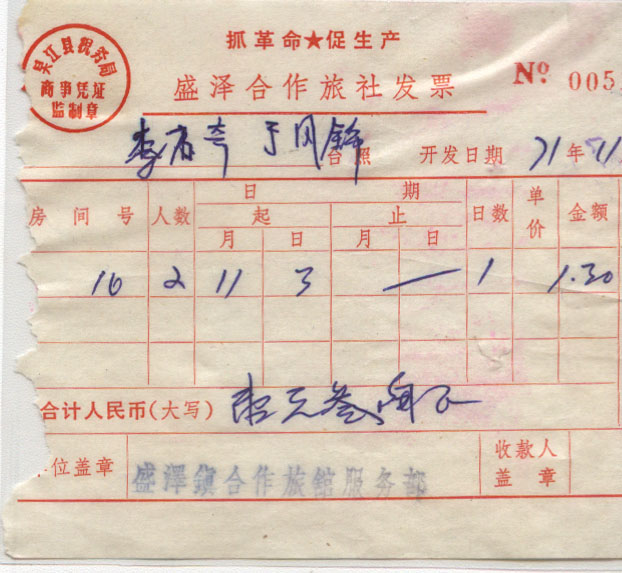 抓革命★促生产
吴江县税务局
商事凭证
监制章
盛泽合作旅社发票
Nº 005
于凤 台照 开发日期 71年11
房间号 人数 日期 日数 单价 金额
起 止
月 日 月 日
16 2 11 3 — 1 1.30
合计人民币(大写) 壹元叁角正
单位盖章 盛澤鎮合作旅舘服务部 收款人盖章